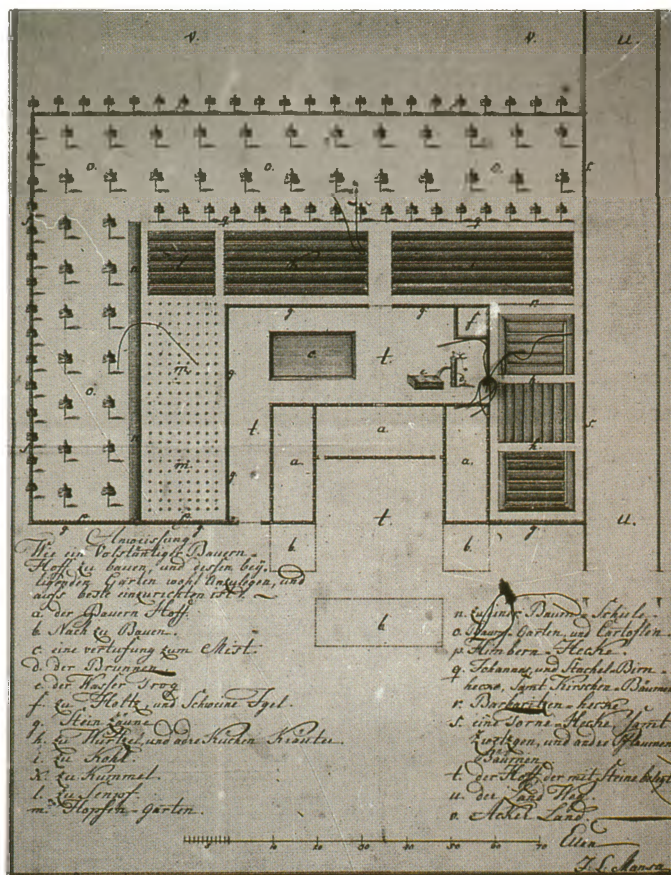 v. v. u.
o. o. o. s
q q
l k i
q q r
f
c t.
m
o. n q t a. h s.
a. a.
m. q k
t. u.
p. q p. q q
b b
Anweissung
Wie ein Volständiger Bauern-
Hoff zu bauen, und dessen bey-
ligenden Garten wohl anzulegen, und
aufs beste einzurichten ist.
a. der Bauern Hoff.
b. Nach zu Bauen.
c. eine vertufung zum Mist.
d. der Brunnen
e. der Wasser Trog
f. zu Holtz und Schweine
g. Stein Zäune
h. zu Wurtzel, und Kücken Kräuter.
i. zu Kohl.
k. zu Kümmel.
l. zu Senpf.
m. Hopfen-Garten.
b
n. zu einer Baum-Schule.
o. Baum-Garten, und Cartoflen.
p. Himbern-Hecke.
q. Johannes, und Stachel-Birn
hecke, Samt Kirschen-Bäumen
r. Barbaritzen-hecke
s. eine Dorne-Hecke, Samt
Zwetzgen, und andre Pflaumen
Bäumen.
t. der Hoff, der mit Steine belegt
u. der Land Weg.
v. Acker Land.
5 10 20 30 40 50 60 70 Ellen
J. L. Mansa